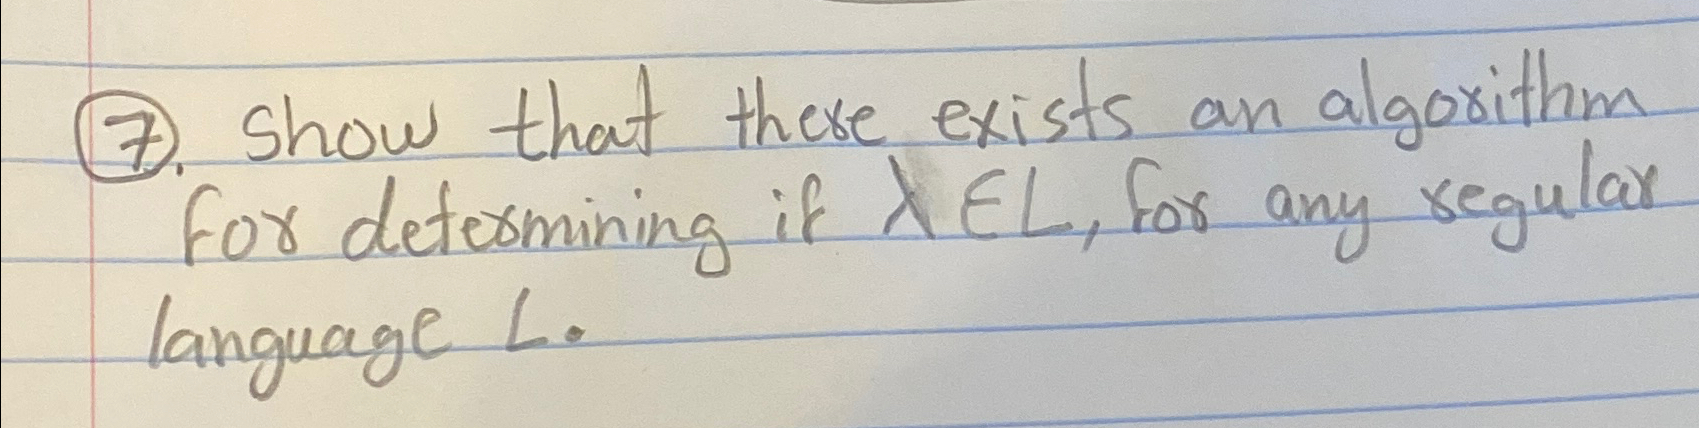 ⑦. Show that there exists an algorithm
for determining if λ∈L, for any regular
language L.